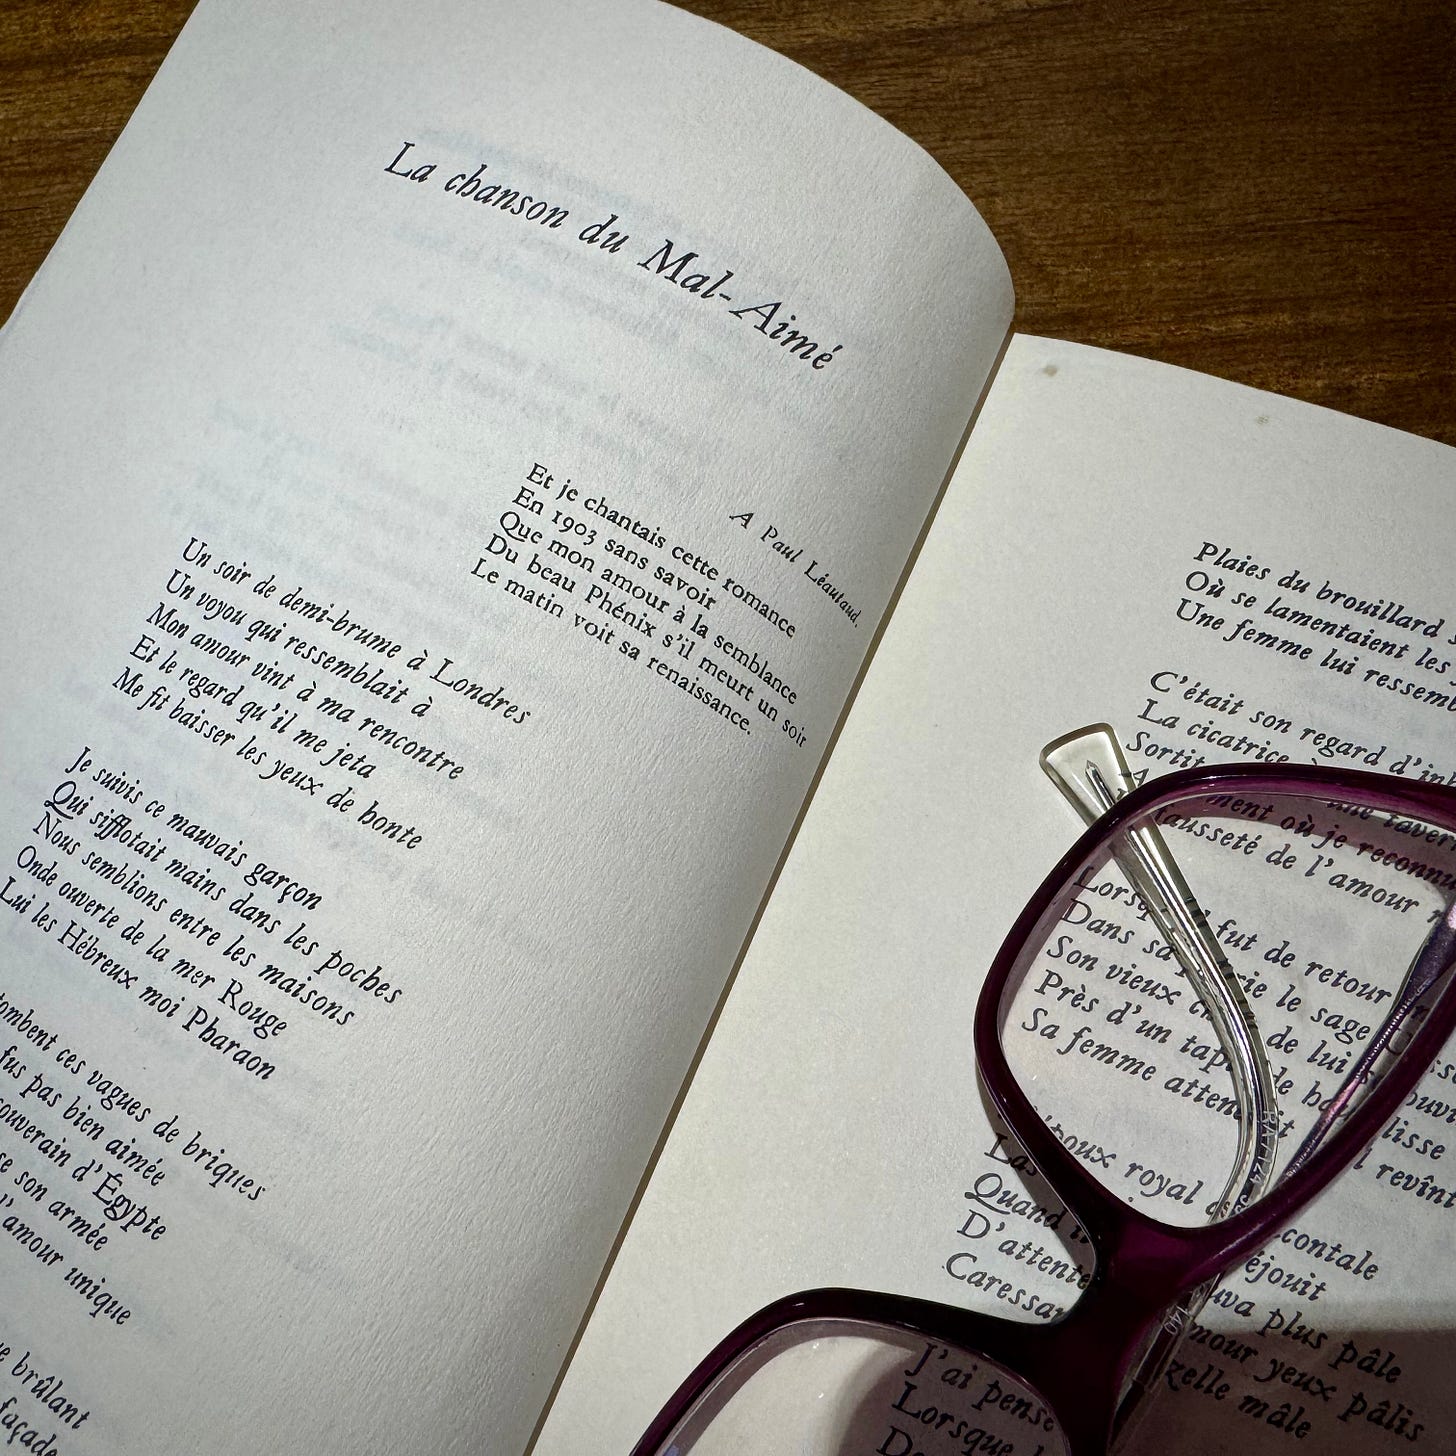 La chanson du Mal-Aimé
A Paul Léautaud.
Et je chantais cette romance
En 1903 sans savoir
Que mon amour à la semblance
Du beau Phénix s'il meurt un soir
Le matin voit sa renaissance.
Un soir de demi-brume à Londres
Un voyou qui ressemblait à
Mon amour vint à ma rencontre
Et le regard qu'il me jeta
Me fit baisser les yeux de honte
Je suivis ce mauvais garçon
Qui sifflotait mains dans les poches
Nous semblions entre les maisons
Onde ouverte de la mer Rouge
Lui les Hébreux moi Pharaon
tombent ces vagues de briques
fus pas bien aimée
souverain d'Égypte
son armée
l'amour unique
brûlant
façade
Plaies du brouillard
Où se lamentaient les
Une femme lui
C'était son regard
La cicatrice
Sortit
une
ment où je
fausseté de l'amour
fut de retour
Dans sa le sage
Son vieux de lui
Près d'un de
Sa femme
revînt
époux royal
Quand
D'attente
plus pâle
Caressa
amour yeux pâlis
mâle
J'ai pensé
Lorsque